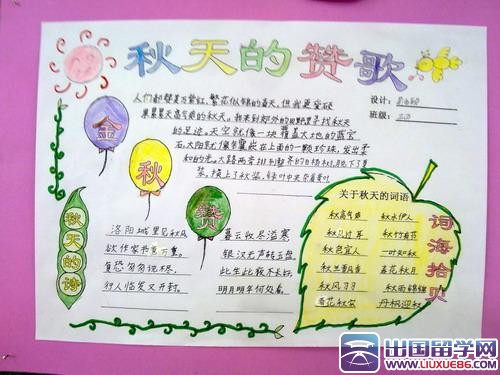 秋天的赞歌
人们都赞美万紫红、繁花似锦的春天,但我更爱硕
果累累天高气爽的秋天。我来到郊外的田野里寻找秋天
的足迹。天空就像一块覆盖大地的蓝宝
石,太阳就像镶嵌在上面的一颗珍珠,发出柔
和的光。大路两旁排列整齐的白杨树儿脱下了夏
装,换上了秋装,
设计:
班级:
金
秋
赞
秋天的诗
洛阳城里见秋风
欲作家书意万重。
复恐匆匆说不尽,
行人临发又开封。
暮云收尽溢清寒
银汉无声转玉盘
此生此夜不长好,
明月明年何处看。
关于秋天的词语
秋高气爽 秋水伊人
秋风过耳
秋色宜人 一叶知秋
春花秋月
秋雨绵绵
丹枫迎秋
词海拾贝
出国留学网
WWW.LIUXUE86.COM